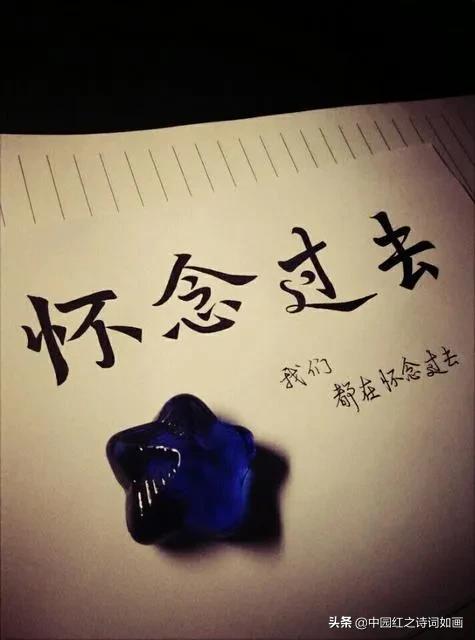 怀念过去
我们
都在怀念过去
头条 @中园红之诗词如画